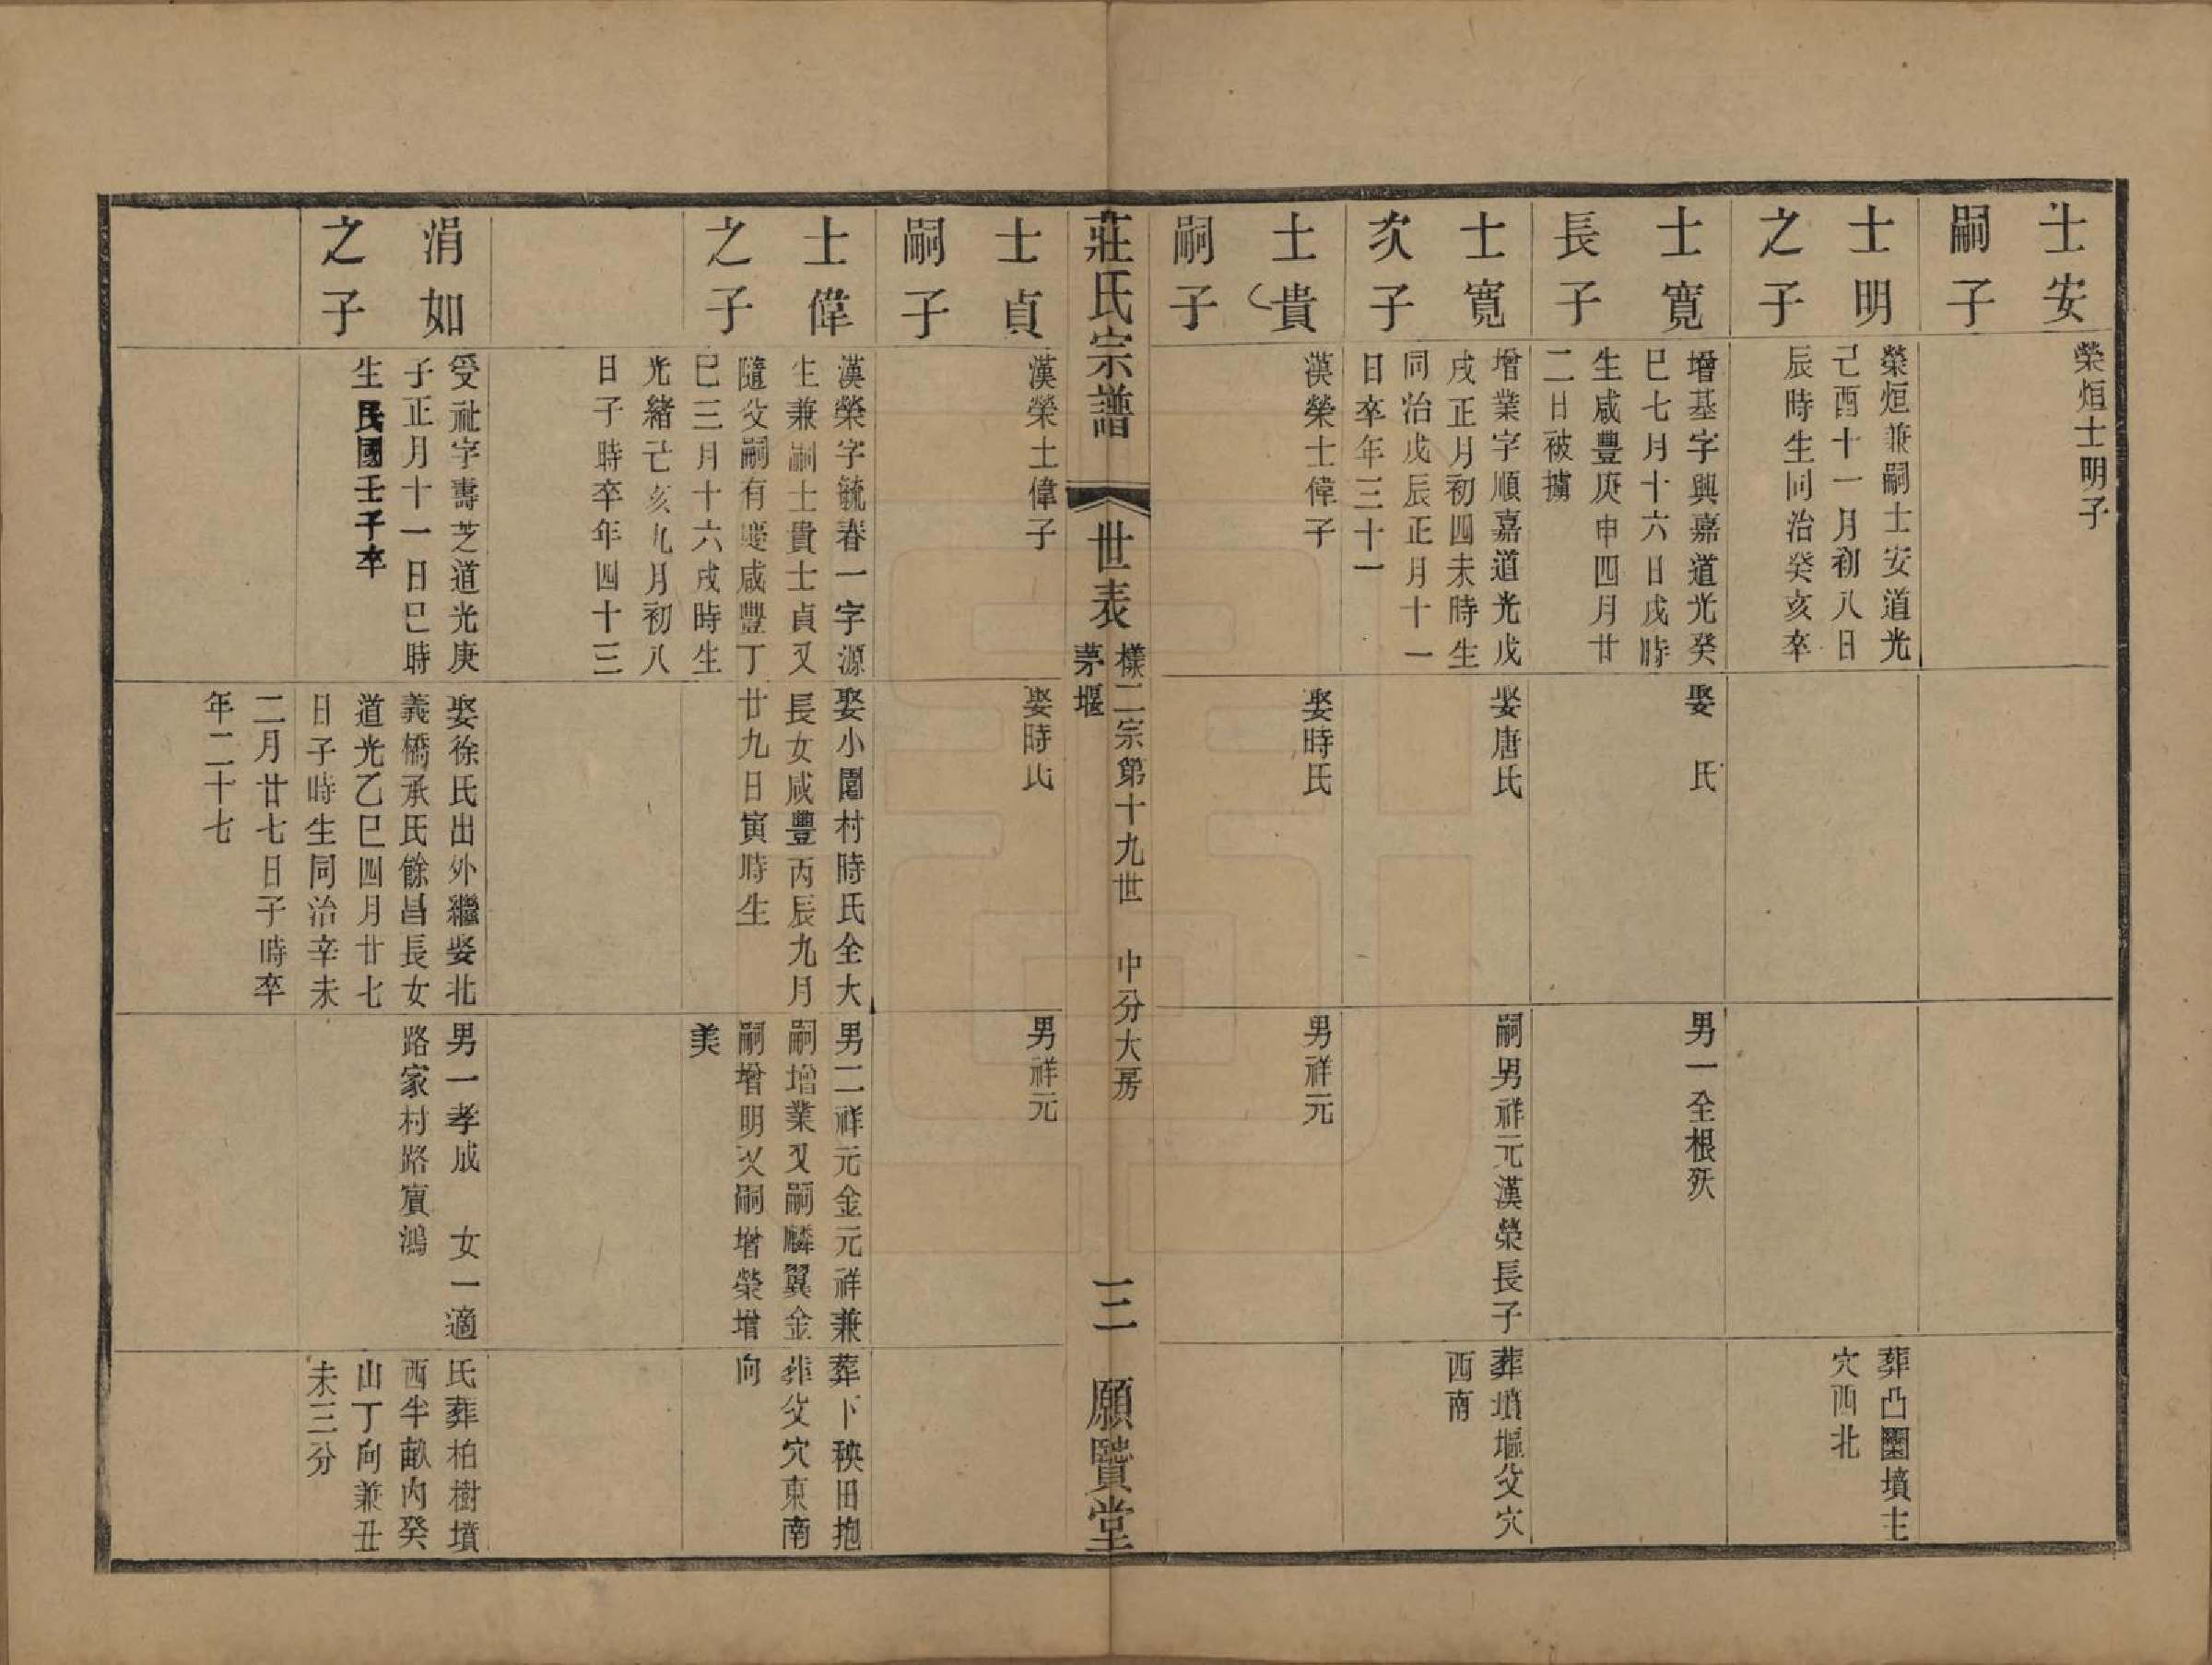 士安
嗣子
榮烜士明子
士明
之子
榮烜兼嗣士安道光
己酉十一月初八日
辰時生同治癸亥卒
葬凸圞墳主
穴西北
士寛
長子
增基字興嘉道光癸
巳七月十六日戌時
生咸豐庚申四月廿
二日被擄
娶　氏
男一全根殀
士寛
次子
增業字順嘉道光戊
戌正月初四未時生
同治戊辰正月十一
日卒年三十一
娶唐氏
嗣男祥元漢榮長子
葬墳堰父穴
西南
士貴
嗣子
漢榮士偉子
娶時氏
男祥元
莊氏宗譜
世表
樣二宗第十九世　中分大房
茅堰
三
願賢堂
士貞
嗣子
漢榮士偉子
娶時氏
男祥元
士偉
之子
漢榮字毓春一字源
生兼嗣士貴士貞又
隨父嗣有慶咸豐丁
巳三月十六戌時生
光緒己亥九月初八
日子時卒年四十三
娶小園村時氏全大
長女咸豐丙辰九月
廿九日寅時生
男二祥元金元祥兼
嗣增業又嗣麟翼金
嗣增明又嗣增榮增
美
葬卜秧田抱
葬父穴東南
向
涓如
之子
受祉字壽芝道光庚
子正月十一日巳時
生民國壬子卒
娶徐氏出外繼娶北
義橋承氏餘昌長女
道光乙巳四月廿七
日子時生同治辛未
二月廿七日子時卒
年二十七
男一孝成　女一適
路家村路寅鴻
氏葬柏樹墳
西半畝內癸
山丁向兼丑
未三分